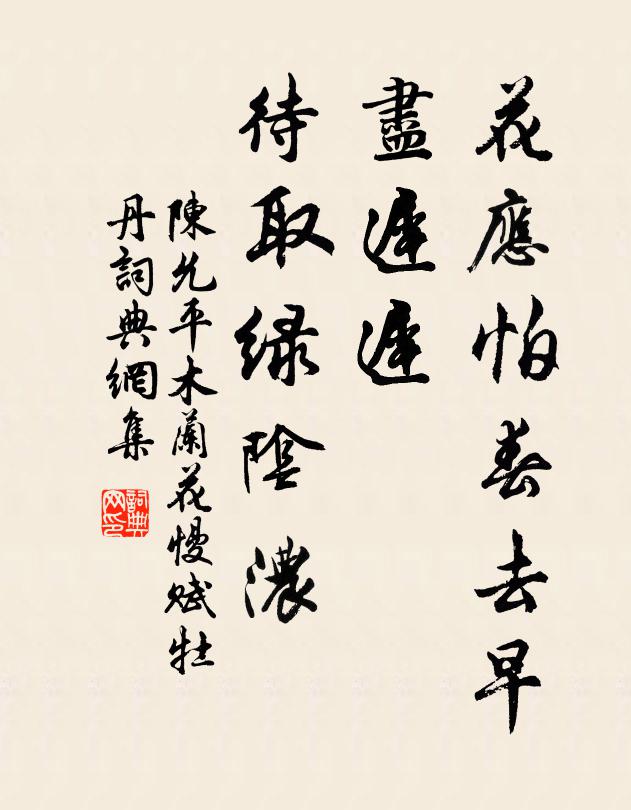 花應怕春去早
盡遲遲
待取綠陰濃
陳允平木蘭花慢賦牡
丹詞典網集
詞典
网印